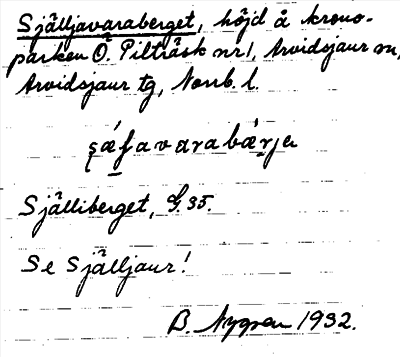 Själljavaraberget, höjd å krono-
parken Ö. Pilträsk nr 1, Arvidsjaur sn,
Arvidsjaur tg, Norrb. l.
şáʃavarabárja
Själliberget, G. 35.
Se Själljaur!
B. Nygren 1932.